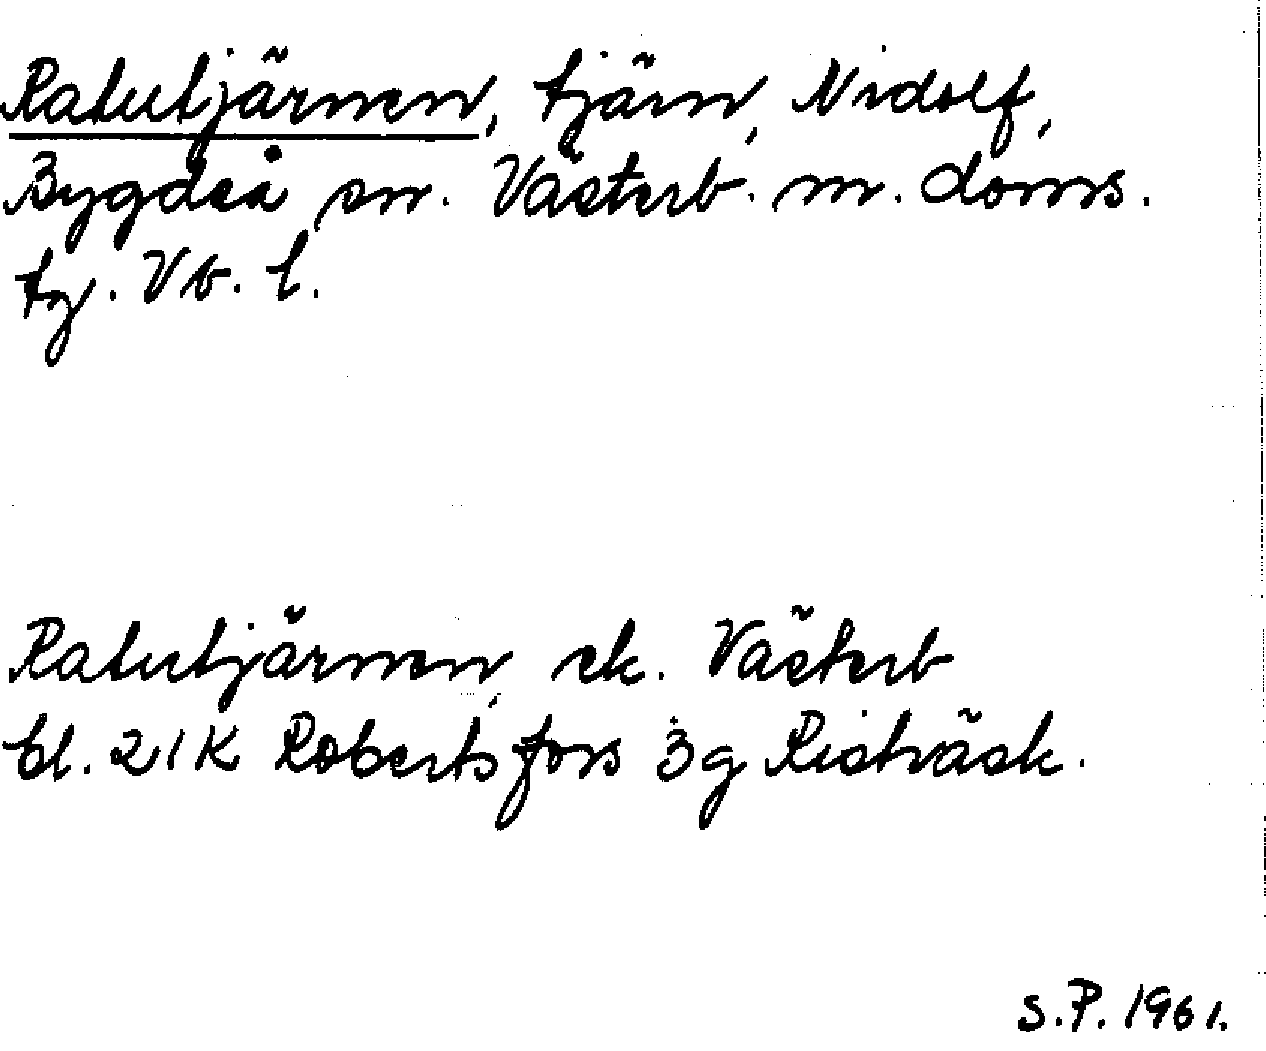 Ratutjärnen, tjärn, Nidolf,
Bygdeå sn. Västerb. m. doms.
tg. Vb. l.
Ratutjärnen, ek. Västerb
bl. 21K Robertsfors 3g Risträsk.
S.P. 1961.